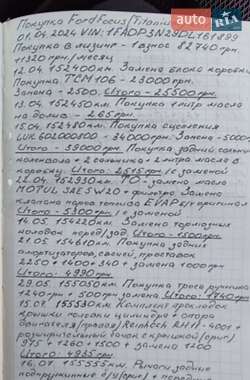 Покупка Ford Focus (Titanium
01.04.2024 VIN: 1FADP3N29DL161899
Покупка в лизинг - 1 взнос 82740 грн.
11320 грн/месяц
12.04. 152400 км. Замена блока коробки
Покупка TCM 106 - 23000 грн.
Замена - 2500. Итого - 25500 грн.
13.04. 152450 км. Покупка 1 литр масла
на долив - 465 грн.
15.04. 152480 км. Покупка сцепления
LUK 602000800 - 34000 грн. Замена - 5000
Итого - 39000 грн. Покупка задний сальник
коленвала + 2 сальника + 2 литра масла в
коробку Итого - 4515 грн. (с заменой
21.04. 152930 км. ТО - замена масло
MOTUL SAE 5W20 + фильтра. Замена
клапана паров топлива EVAP б/у оригинал
Итого - 5300 грн. (с заменой
14.05. 154120 км. Замена тормозных
колодок перед/зад Итого - 1500 грн.
21.05. 154610 км. Покупка задние
амортизаторы, свечей, проставок
2250 + 1600 + 140 + замена 1000 грн
Итого - 4990 грн.
29.05. 155050 км. Покупка троса ручника
1240 грн + 500 грн замена Итого - 1740 грн.
15.01. 155530 км. Комплект прокладок
крышки головки цилиндра + опора
двигателя (права) Reinhoch RH11-4001 +
розширительный бачок с крышкой (ориг)
975 + 1260 + 1500 + замена 1200
Итого - 4935 грн.
16.01. 155555 км. Рычаги задние